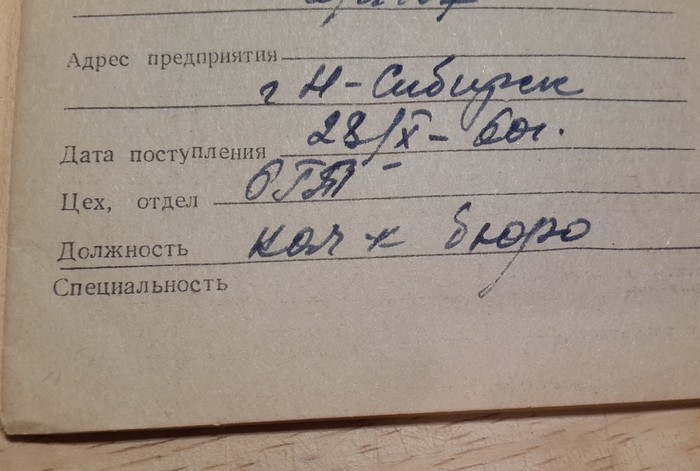 Адрес предприятия
г Н-Сибирск
Дата поступления 28/X - 60г.
Цех, отдел
Должность нач-к бюро
Специальность